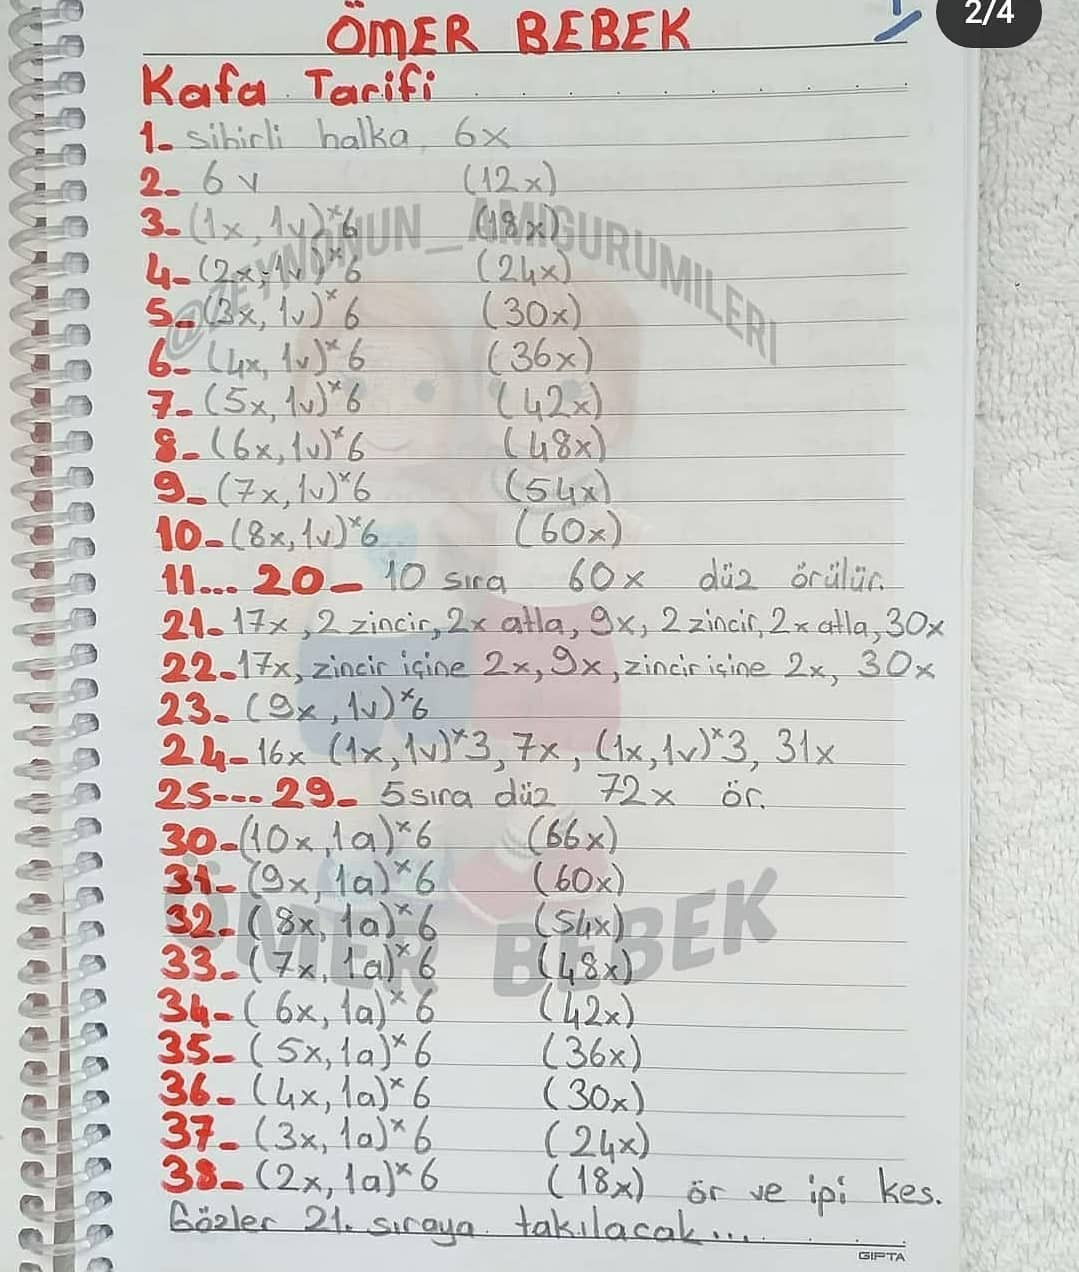 2/4
ÖMER BEBEK
Kafa Tarifi
1- sihirli halka 6x
2- 6v (12x)
3- (1x, 1v)*6 (18x)
4- (2x, 1v)*6 (24x)
5- (3x, 1v)*6 (30x)
6- (4x, 1v)*6 (36x)
7- (5x, 1v)*6 (42x)
8- (6x, 1v)*6 (48x)
9- (7x, 1v)*6 (54x)
10- (8x, 1v)*6 (60x)
11... 20- 10 sıra 60x düz örülür.
21- 17x, 2 zincir, 2x atla, 9x, 2 zincir, 2x atla, 30x
22- 17x, zincir içine 2x, 9x, zincir içine 2x, 30x
23- (9x, 1v)*6
24- 16x (1x, 1v)*3, 7x, (1x, 1v)*3, 31x
25---- 29- 5 sıra düz 72x ör.
30- (10x, 1a)*6 (66x)
31- (9x, 1a)*6 (60x)
32- (8x, 1a)*6 (54x)
33- (7x, 1a)*6 (48x)
34- (6x, 1a)*6 (42x)
35- (5x, 1a)*6 (36x)
36- (4x, 1a)*6 (30x)
37- (3x, 1a)*6 (24x)
38- (2x, 1a)*6 (18x) ör ve ipi kes.
Gözler 21. sıraya takılacak...
GIPTA
@ZEYNONUN_AMIGURUMILERI
ÖMER BEBEK